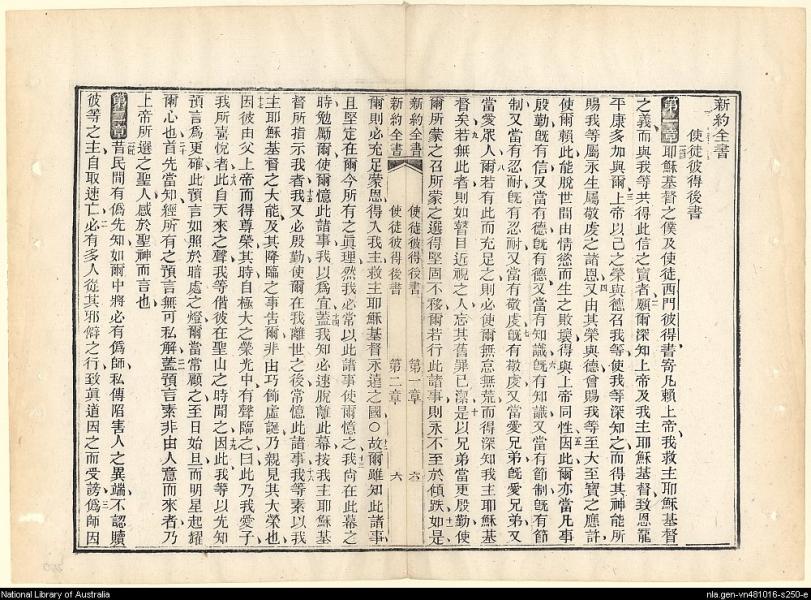 新約全書
使徒彼得後書
第一章耶穌基督之僕及使徒西門彼得書寄凡賴上帝我救主耶穌基督
之義而與我等共得此信之寶者願爾深知上帝及我主耶穌基督致恩寵
平康多加與爾上帝以己之榮與德召我等使我等深知之而得其神能所
賜我等屬永生屬敬虔之諸恩又由其榮與德曾賜我等至大至寶之應許
使爾賴此能脫世間由情慾而生之敗壞得與上帝同性因此爾亦當凡事
殷勤既有信又當有德既有德又當有知識既有知識又當有節制既有節
制又當有忍耐既有忍耐又當有敬虔既有敬虔又當愛兄弟既愛兄弟又
當愛眾人爾若有此而充足之則必使爾無怠無荒而得深知我主耶穌基
督矣若無此者則如瞽目近視之人忘其舊罪已潔是以兄弟當更殷勤使
爾所蒙之召所蒙之選得堅固不移爾若行此諸事則永不至於傾跌如是
新約全書 使徒彼得後書 第一章 六
新約全書 使徒彼得後書 第二章 六
爾則必充足蒙恩得入我主救主耶穌基督永遠之國○故爾雖知此諸事
且堅定在爾今所有之眞理然我必常以此諸事使爾憶之我尙在此幕之
時勉勵爾使爾憶此諸事我以爲宜蓋我知必速脫離此幕按我主耶穌基
督所指示我者我又必殷勤使爾在我離世之後常憶此諸事我等素以我
主耶穌基督之大能及其降臨之事吿爾非由巧飾虛誕乃親見其大榮也
因彼由父上帝而得尊榮其時自極大之榮光中有聲臨之曰此乃我愛子
我所喜悅者此自天來之聲我等偕彼在聖山之時聞之因此我等以先知
預言爲更確此預言如照於暗處之燈爾當常顧之至日始旦而明星起耀
爾心也首先當知經所有之預言無可私解蓋預言素非由人意而來者乃
上帝所選之聖人感於聖神而言也
第二章昔民間有僞先知如爾中將必有僞師私傳陷害人之異端不認贖
彼等之主自取速亡必有多人從其邪辟之行致眞道因之而受謗僞師因
National Library of Australia
nla.gen-vn481016-s250-e